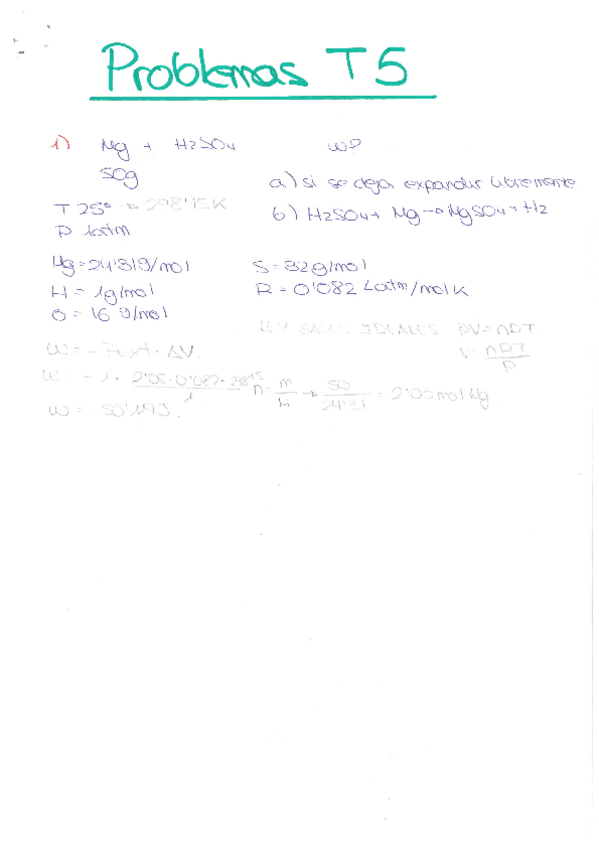 Problemas T5
1) Mg + H2SO4 w?
50g
a) si se deja expandir libremente
T 25º → 298'15K
b) H2SO4 + Mg → MgSO4 + H2
P 1atm
Mg = 24'31g/mol S = 32g/mol
H = 1g/mol R = 0'082 Latm/molK
O = 16 g/mol
LEY GASES IDEALES PV = nRT
w = - Pext · ΔV
V = nRT/P
w = - 1 · 2'05 · 0'082 · 298'15 / 1
n = m/M → 50/24'31 = 2'05 mol Mg
w = - 50'19J.